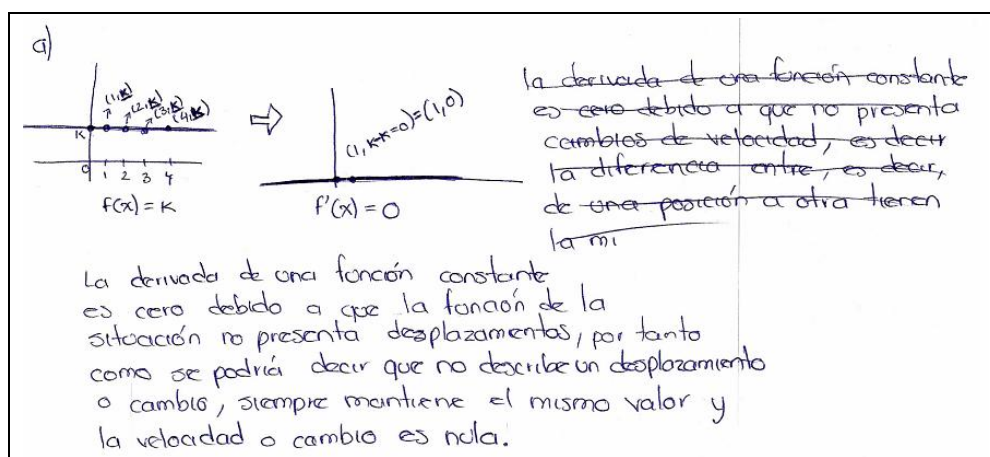 a)
(1,K) (2,K) (3,K) (4,K)
K
0 1 2 3 4
f(x) = K
⇨
(1, K-K=0) = (1,0)
f'(x) = 0
la derivada de una función constante
es cero debido a que no presenta
cambios de velocidad, es decir
la diferencia entre, es decir,
de una posición a otra tienen
la mi
La derivada de una función constante
es cero debido a que la función de la
situación no presenta desplazamientos, por tanto
como se podría decir que no describe un desplazamiento
o cambio, siempre mantiene el mismo valor y
la velocidad o cambio es nula.